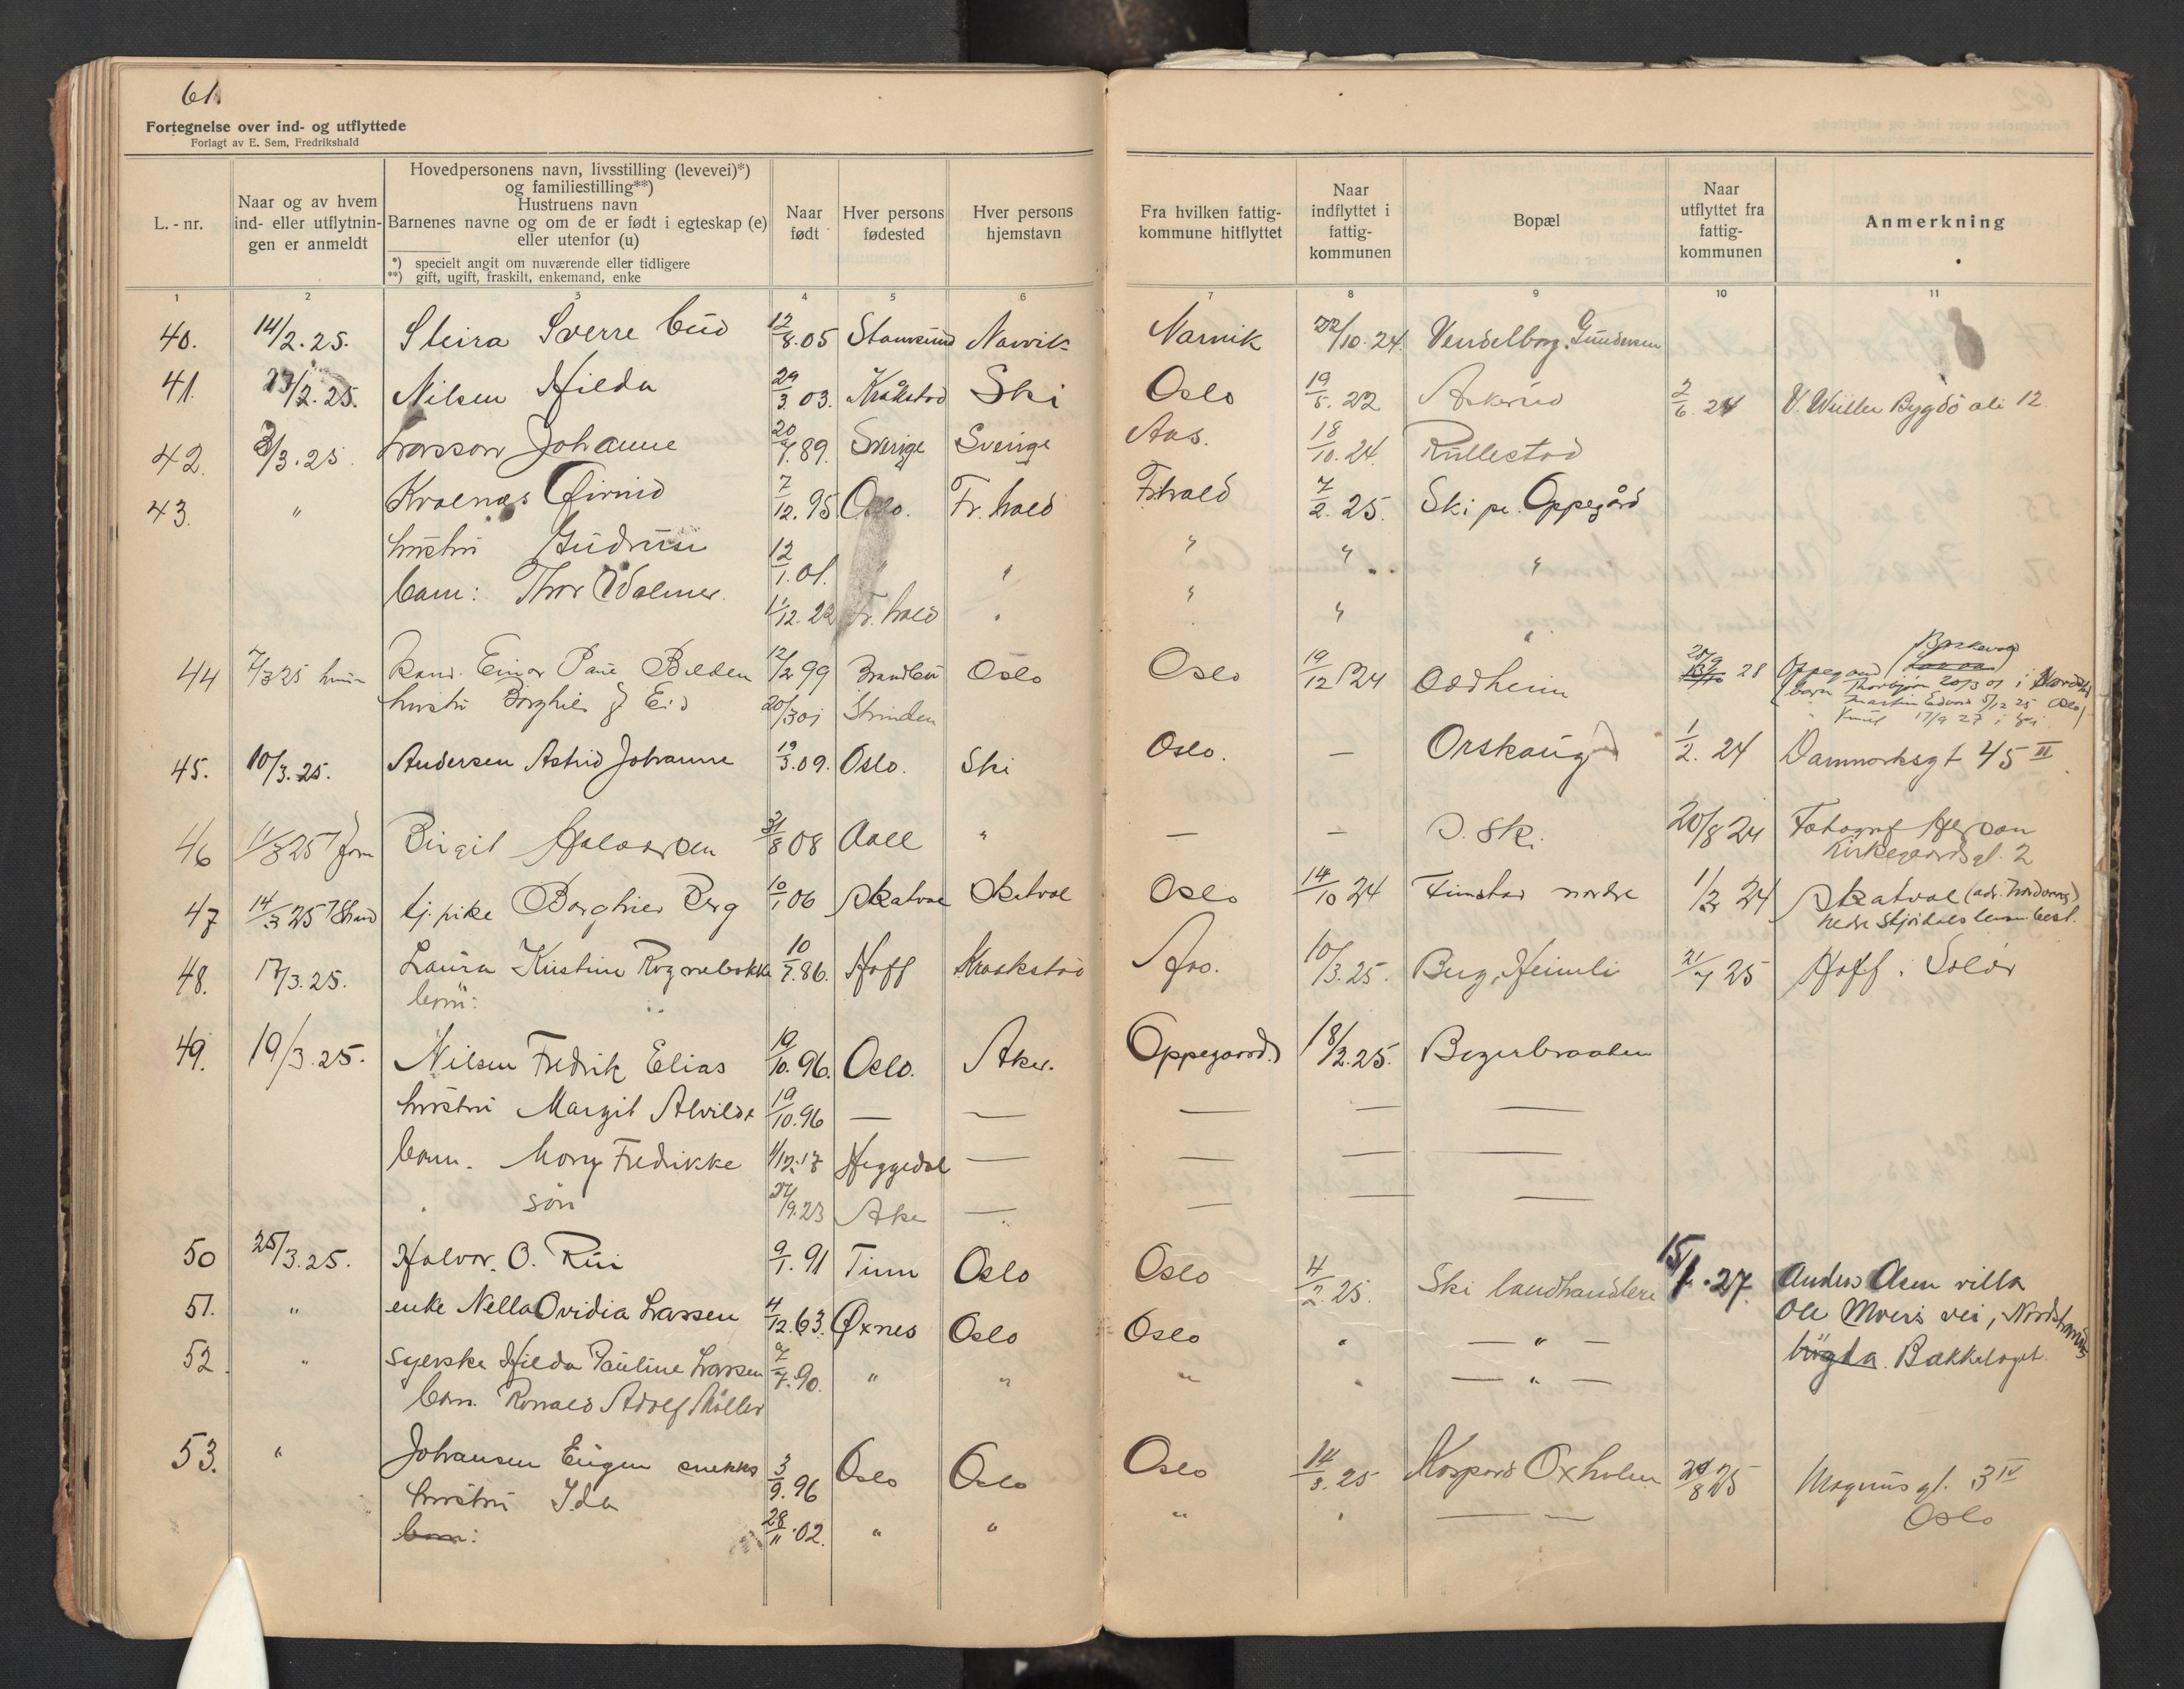 61.
Fortegnelse over ind- og utflyttede
Forlagt av E. Sem, Fredrikshald
L. - nr.
Naar og av hvem ind- eller utflytnin- gen er anmeldt
Hovedpersonens navn, livsstilling (levevei)*)
og familiestilling**)
Hustruens navn
Barnenes navne og om de er født i egteskap (e)
eller utenfor (u)
*) specielt angit om nuværende eller tidligere
**) gift, ugift, fraskilt, enkemand, enke
Naar født
Hver persons fødested
Hver persons hjemstavn
Fra hvilken fattig- kommune hitflyttet
Naar indflyttet i fattig- kommunen
Bopæl
Naar utflyttet fra fattig- kommunen
Anmerkning
1 2 3 4 5 6 7 8 9 10 11
40. 14/2.25. Steira Sverre bud 12/8.05 Stamsund Narvik Narvik 22/10.24. Vendelborg. Gundersen
41. 23/2.25. Nilsen Hilda 29/3.03. Kråkstad Ski Oslo 19/5.22 Askerud 2/6.24 V. Wüller Bygdö ale 12.
42. 3/3.25. Larsson Johanne 20/7.89. Sverige Sverige Aas. 18/10.24. Rullestad
43. " Kraenæs Öivind 7/12.95 Oslo. Fr.hald Frhald 7/2.25. Ski pr. Oppegård
hustru Gudrun 12/1.01. " " " " "
barn: Thor Odalmer. 11/12.22 Fr. hald " " " "
44 7/3 25 Einar Paul Bolden 12/2 99 Oslo Oslo 19/12 24 Oddheim 28 Oppegaard
hustru Borghild f Eid 20/3 01 Strinden Martin Edvard 5/12 25 Oslo
17/9 27 i Ski
45. 10/3.25. Andersen Astrid Johanne 19/3.09. Oslo. Ski Oslo. — Orskaug 1/2.24 Danmarksgt 45 II
46 11/3 25 Birgit Halvorsen 31/8 08 Aall " — — S. Ski. 20/8 24 Fotograf
Kirkegaardsgt. 2
47 14/3 25 tj.pike Borghild Berg 10/1 06 Skatval Skatval Oslo 14/10 24 Finstad nordre 1/2 24 Skatval
nedre Stjørdalslensm.best.
48. 17/3.25. Laura Kristine Rognebakke 10/7.86. Hoff Kraakstad Aas. 10/3.25. Berg, Heimli 21/7 25 Hoff i Solör
barn:
49. 19/3.25. Nilsen Fredrik Elias 19/10.96. Oslo. Aker. Oppegaard. 18/2.25. Bøgerbraaten
hustru Margit Alvilde 19/10.96 — — — — —
barn. Mary Fredrikke 1/12.18 Heggedal — — — —
" sön 24/9.23 Aker — — — —
50 25/3.25. Halvor. O. Rui 9/1.91 Tinn Oslo Oslo 4/2.25. Ski landhandleri 15/1.27. Anders Olsen villa
51. " enke Nella Ovidia Larssen 4/12.63. Øxnes Oslo Oslo " — " — Ole Moers vei, Nordstrands
52. " syerske Hilda Pauline Larssen 7/7.90. " " " " — " — bygda. Bakkelaget.
barn. Ronald Adolf Møller
53. " Johansen Eugen snekker 3/9.96 Oslo Oslo Oslo 14/3.25 Kaspars Oxholm 29/8 25 Magnus gt. 3 IV
hustru Ida 28/11.02. " " " " — — Oslo
barn: